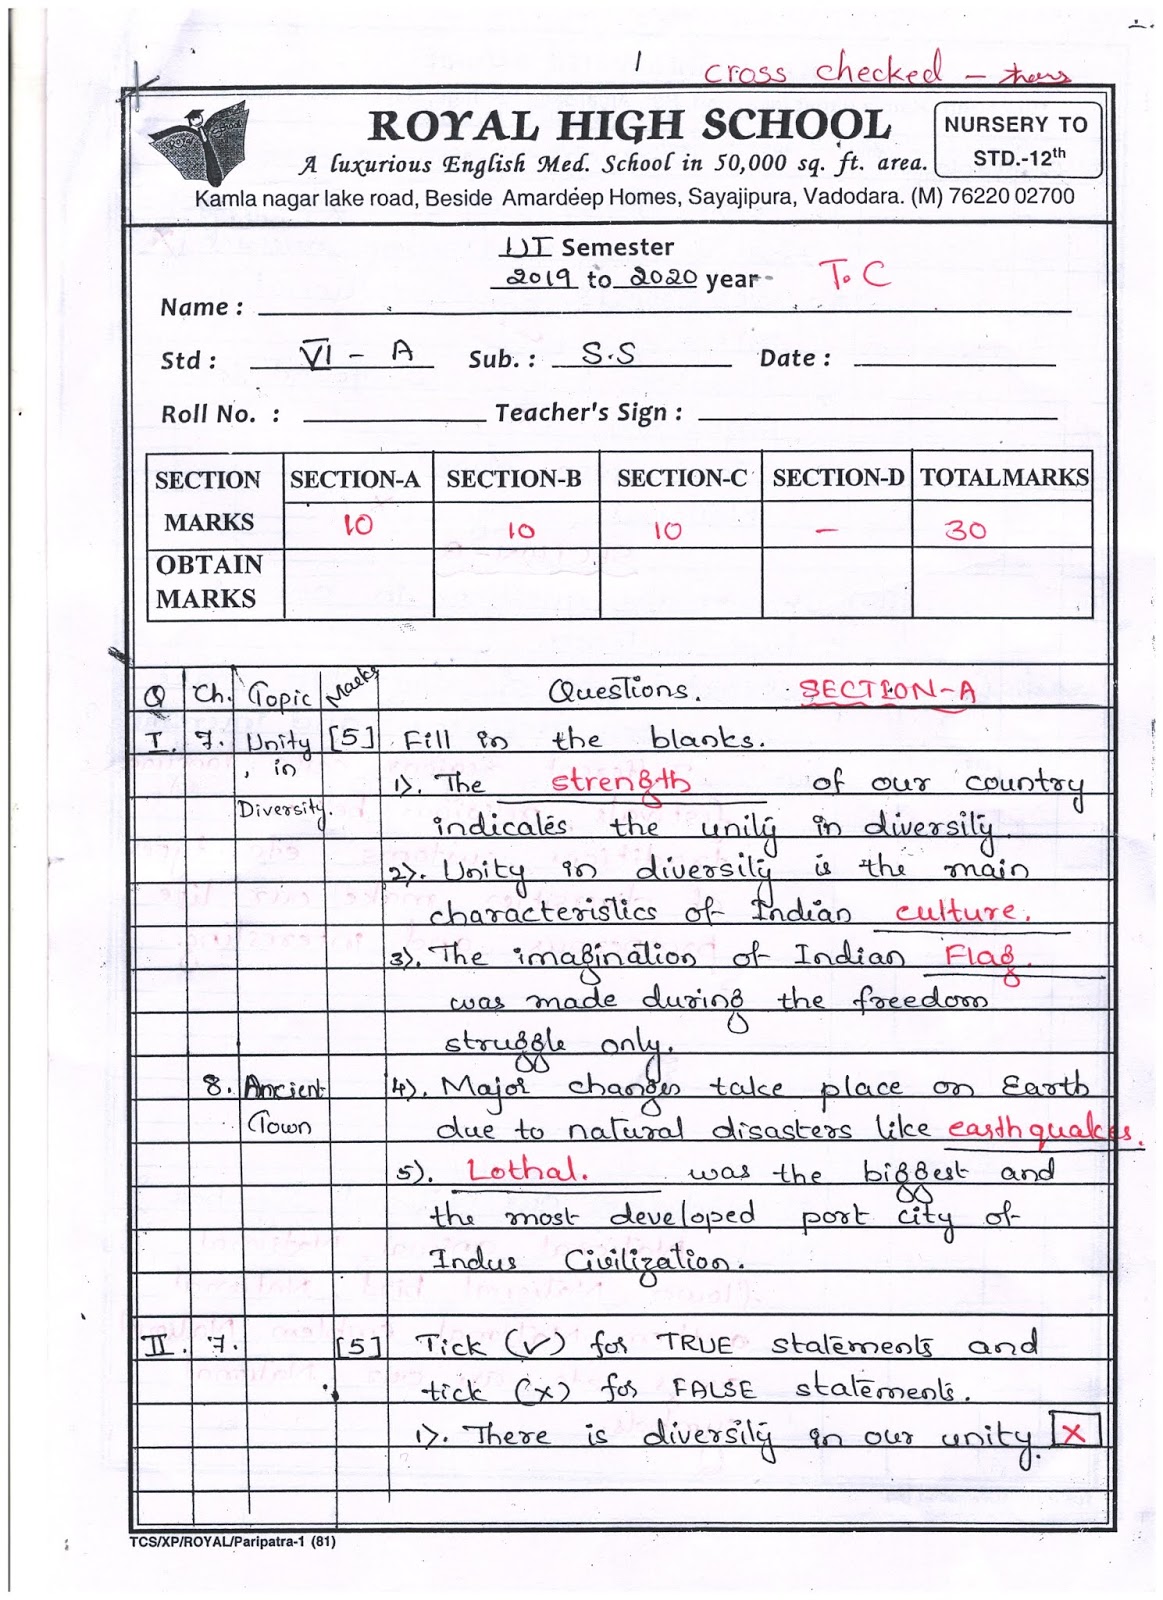 1
cross checked -
ROYAL HIGH SCHOOL
A luxurious English Med. School in 50,000 sq. ft. area.
NURSERY TO
STD.-12th
Kamla nagar lake road, Beside Amardeep Homes, Sayajipura, Vadodara. (M) 76220 02700
Semester
2019 to 2020 year T.C
Name :
Std : VI - A Sub. : S.S Date :
Roll No. : Teacher's Sign :
SECTION SECTION-A SECTION-B SECTION-C SECTION-D TOTALMARKS
MARKS 10 10 10 - 30
OBTAIN
MARKS
Q Ch. Topic Marks Questions. SECTION-A
I. 7. Unity [5] Fill in the blanks.
in 1). The strength of our country
Diversity. indicates the unity in diversity.
2). Unity in diversity is the main
characteristics of Indian culture.
3). The imagination of Indian Flag
was made during the freedom
struggle only.
8. Ancient 4). Major changes take place on Earth
Town due to natural disasters like earthquakes.
5). Lothal. was the biggest and
the most developed port city of
Indus Civilization.
II. 7. [5] Tick (✓) for TRUE statements and
tick (x) for FALSE statements.
1). There is diversity in our unity. x
TCS/XP/ROYAL/Paripatra-1 (81)